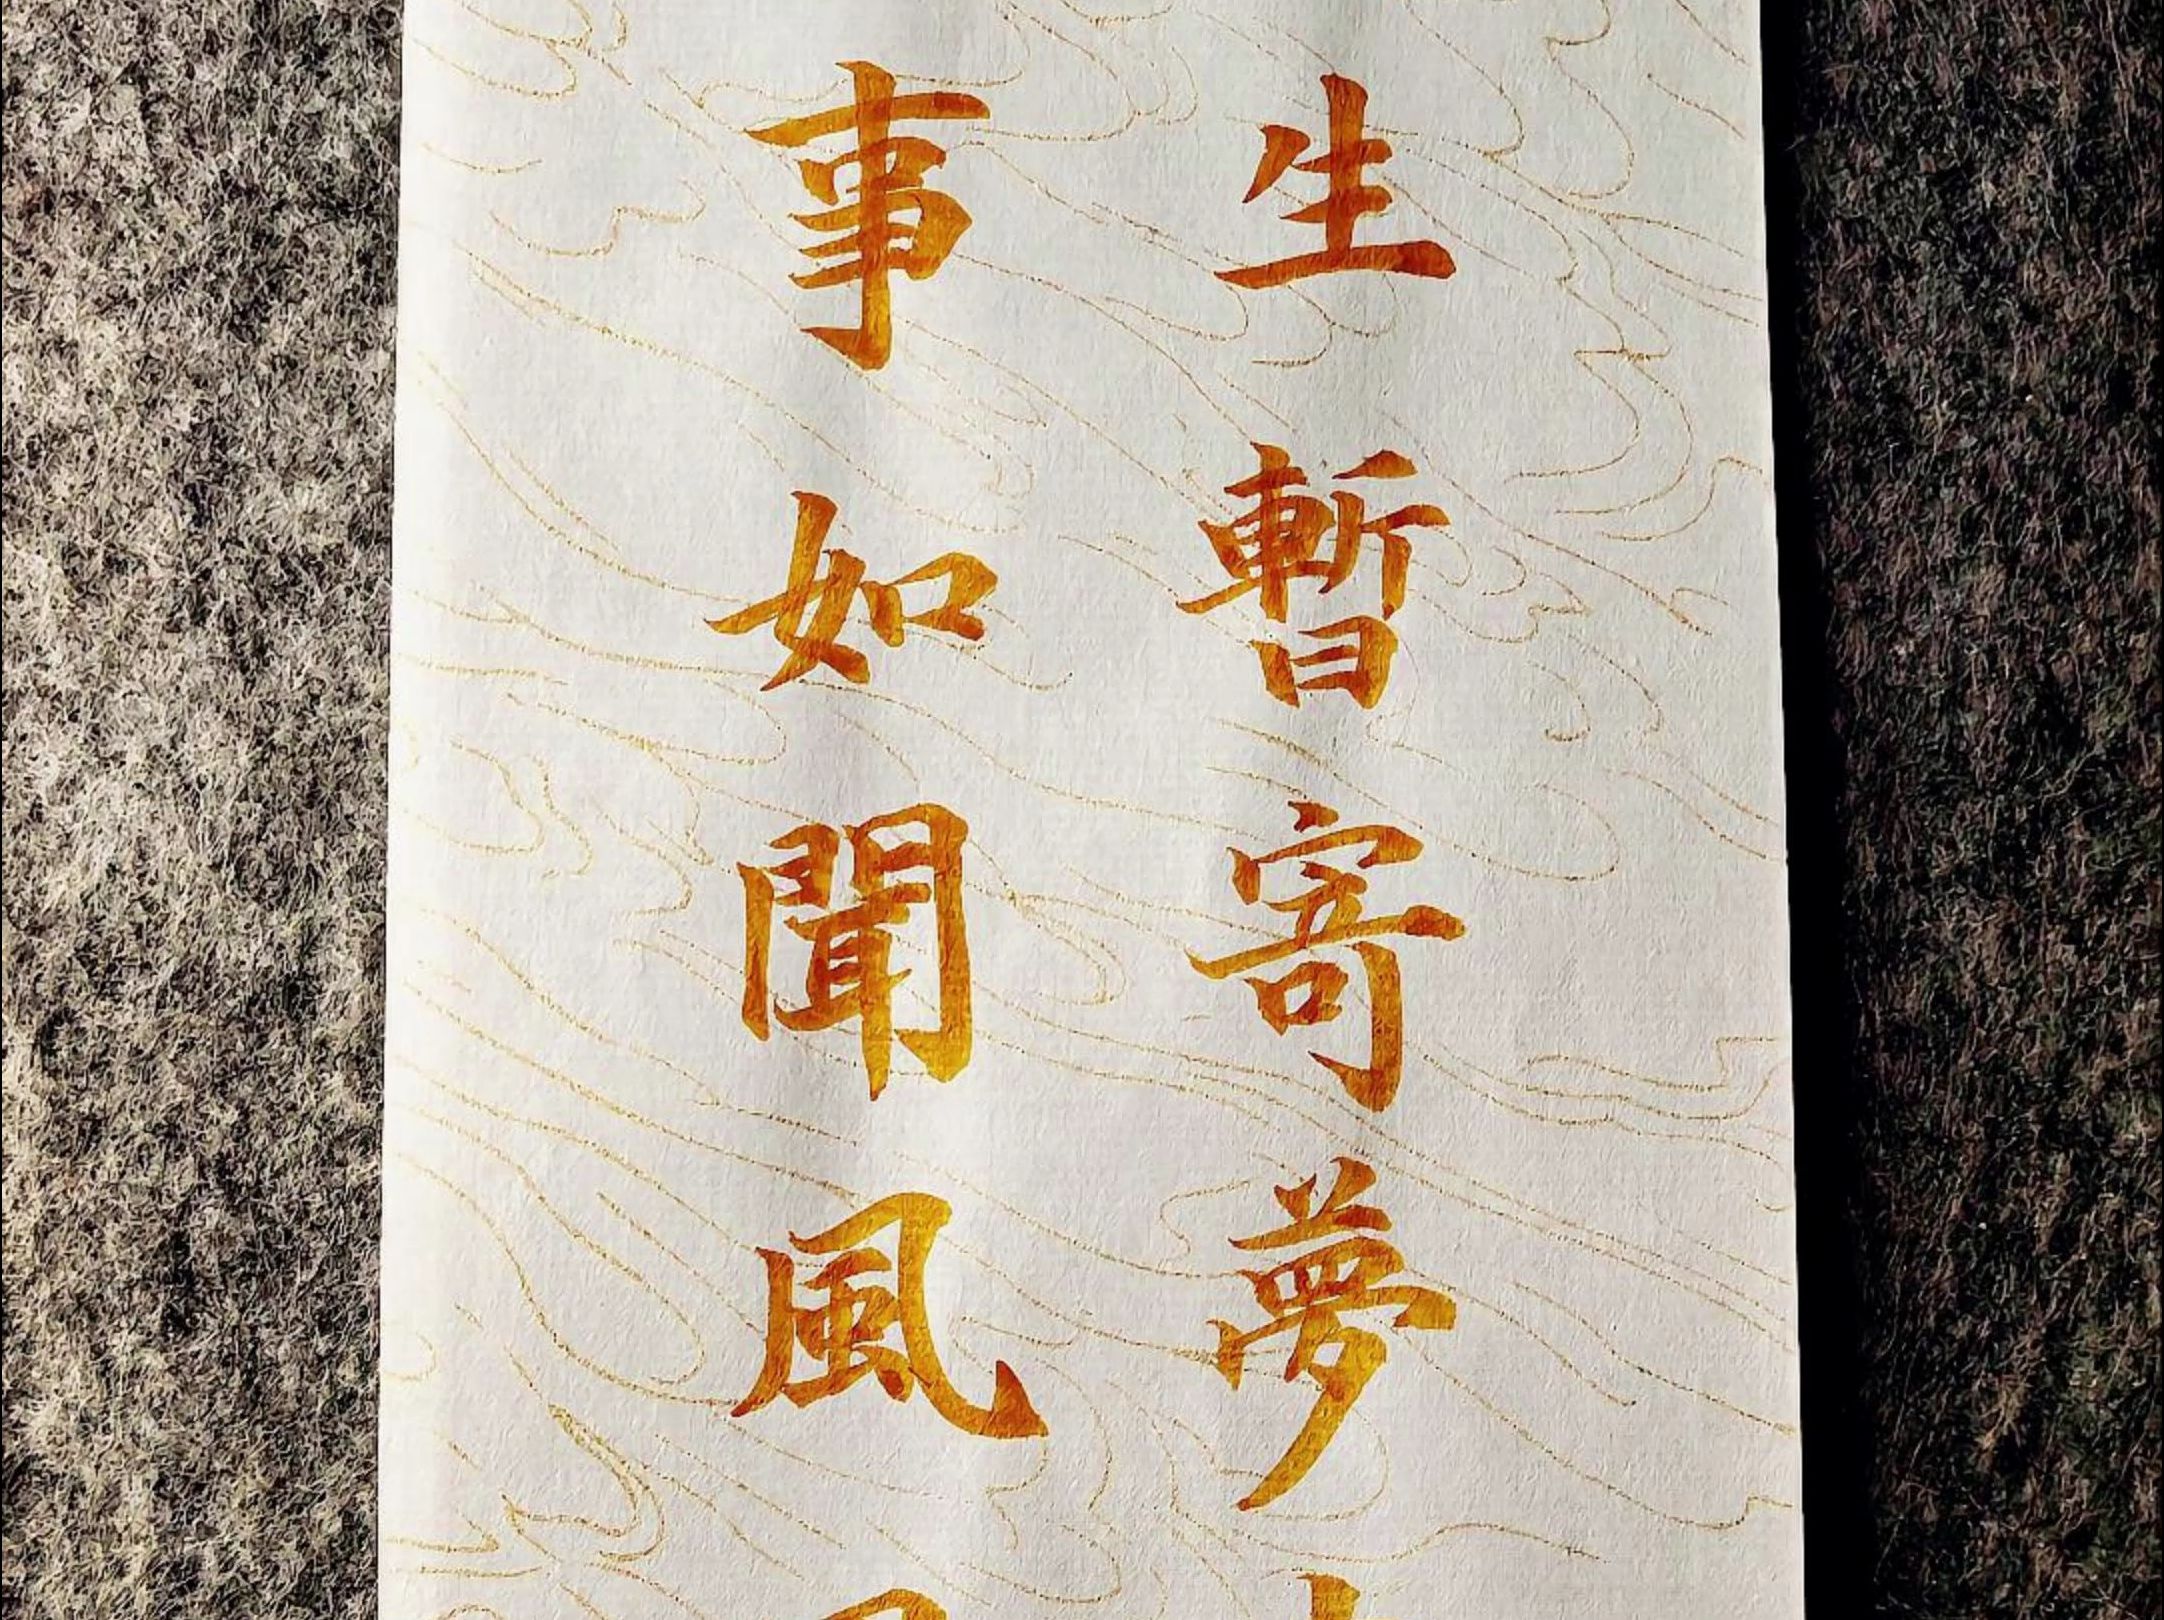 生暫寄夢
事如聞風